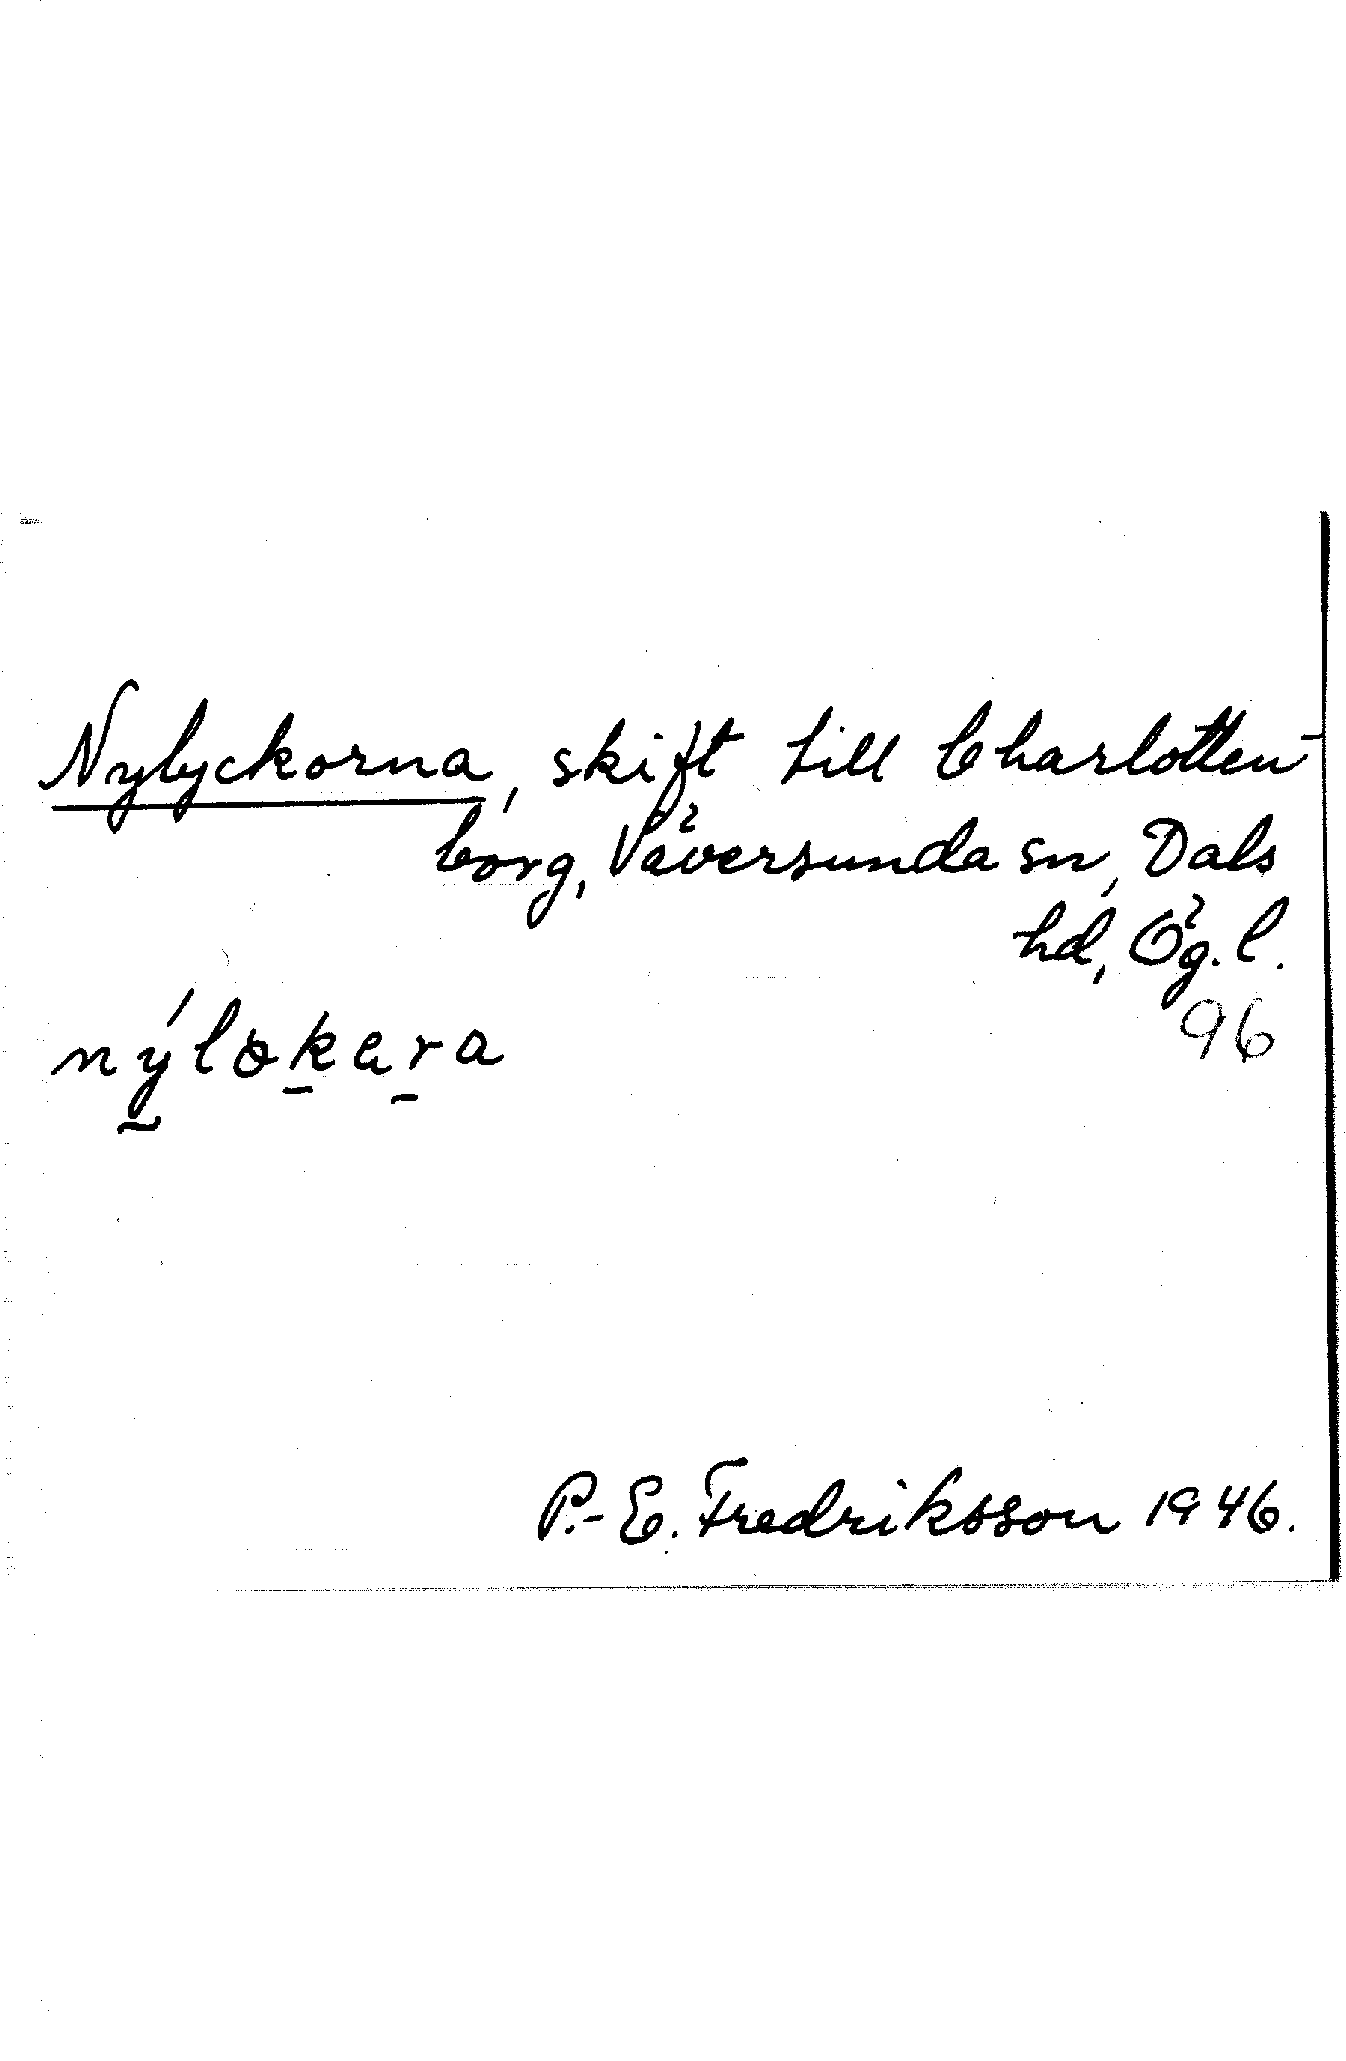 Nylyckorna, skift till Charlotten-
borg, Väversunda sn, Dals
hd, Ög. l.
96
nýlökara
P.-E. Fredriksson 1946.